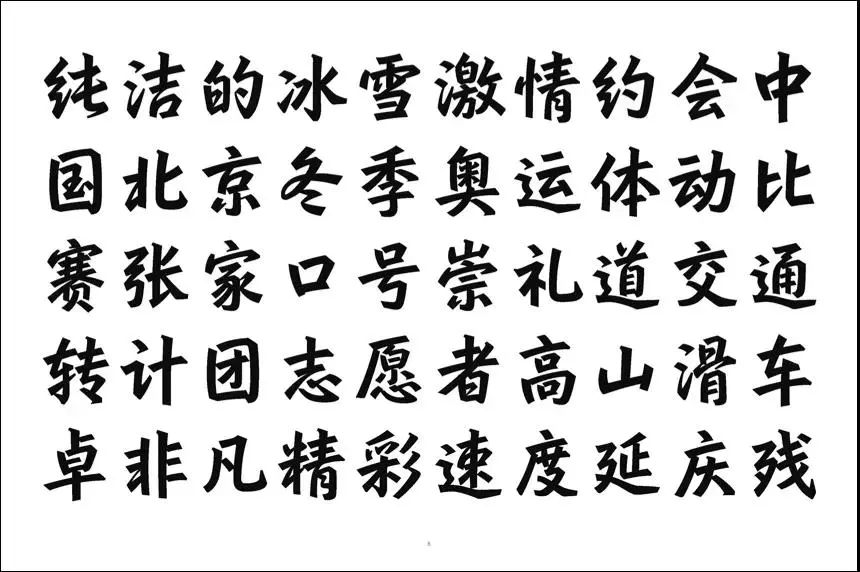 纯洁的冰雪激情约会中
国北京冬季奥运体动比
赛张家口号崇礼道交通
转计团志愿者高山滑车
卓非凡精彩速度延庆残